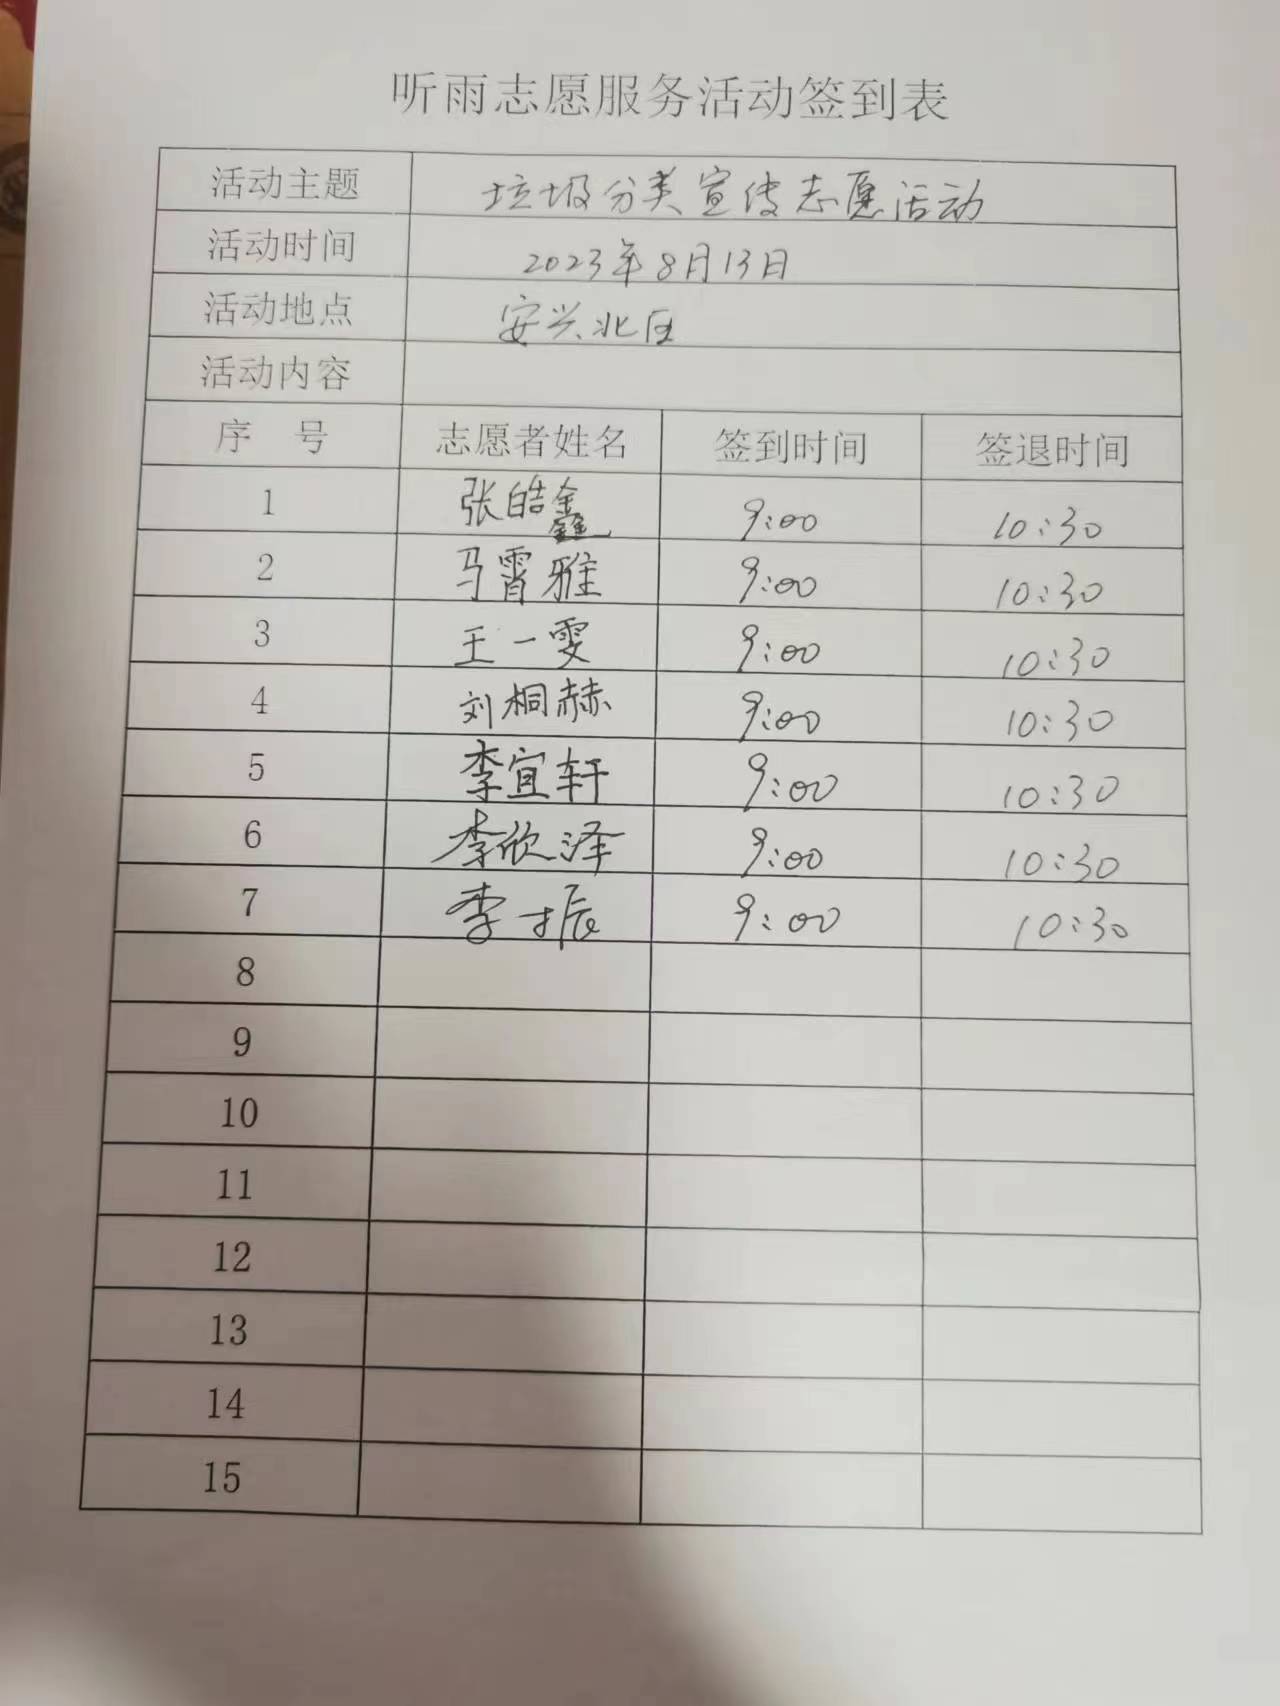 听雨志愿服务活动签到表
活动主题 垃圾分类宣传志愿活动
活动时间 2023年8月13日
活动地点 安兴北区
活动内容
序 号 志愿者姓名 签到时间 签退时间
1 张皓鑫 9:00 10:30
2 马霄雅 9:00 10:30
3 王一雯 9:00 10:30
4 刘桐赫 9:00 10:30
5 李宜轩 9:00 10:30
6 李欣泽 9:00 10:30
7 李振 9:00 10:30
8
9
10
11
12
13
14
15